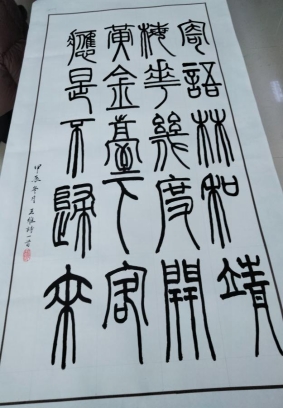 寄語林和靖
梅花幾度開
黃金臺下客
應是不歸來
甲辰年月